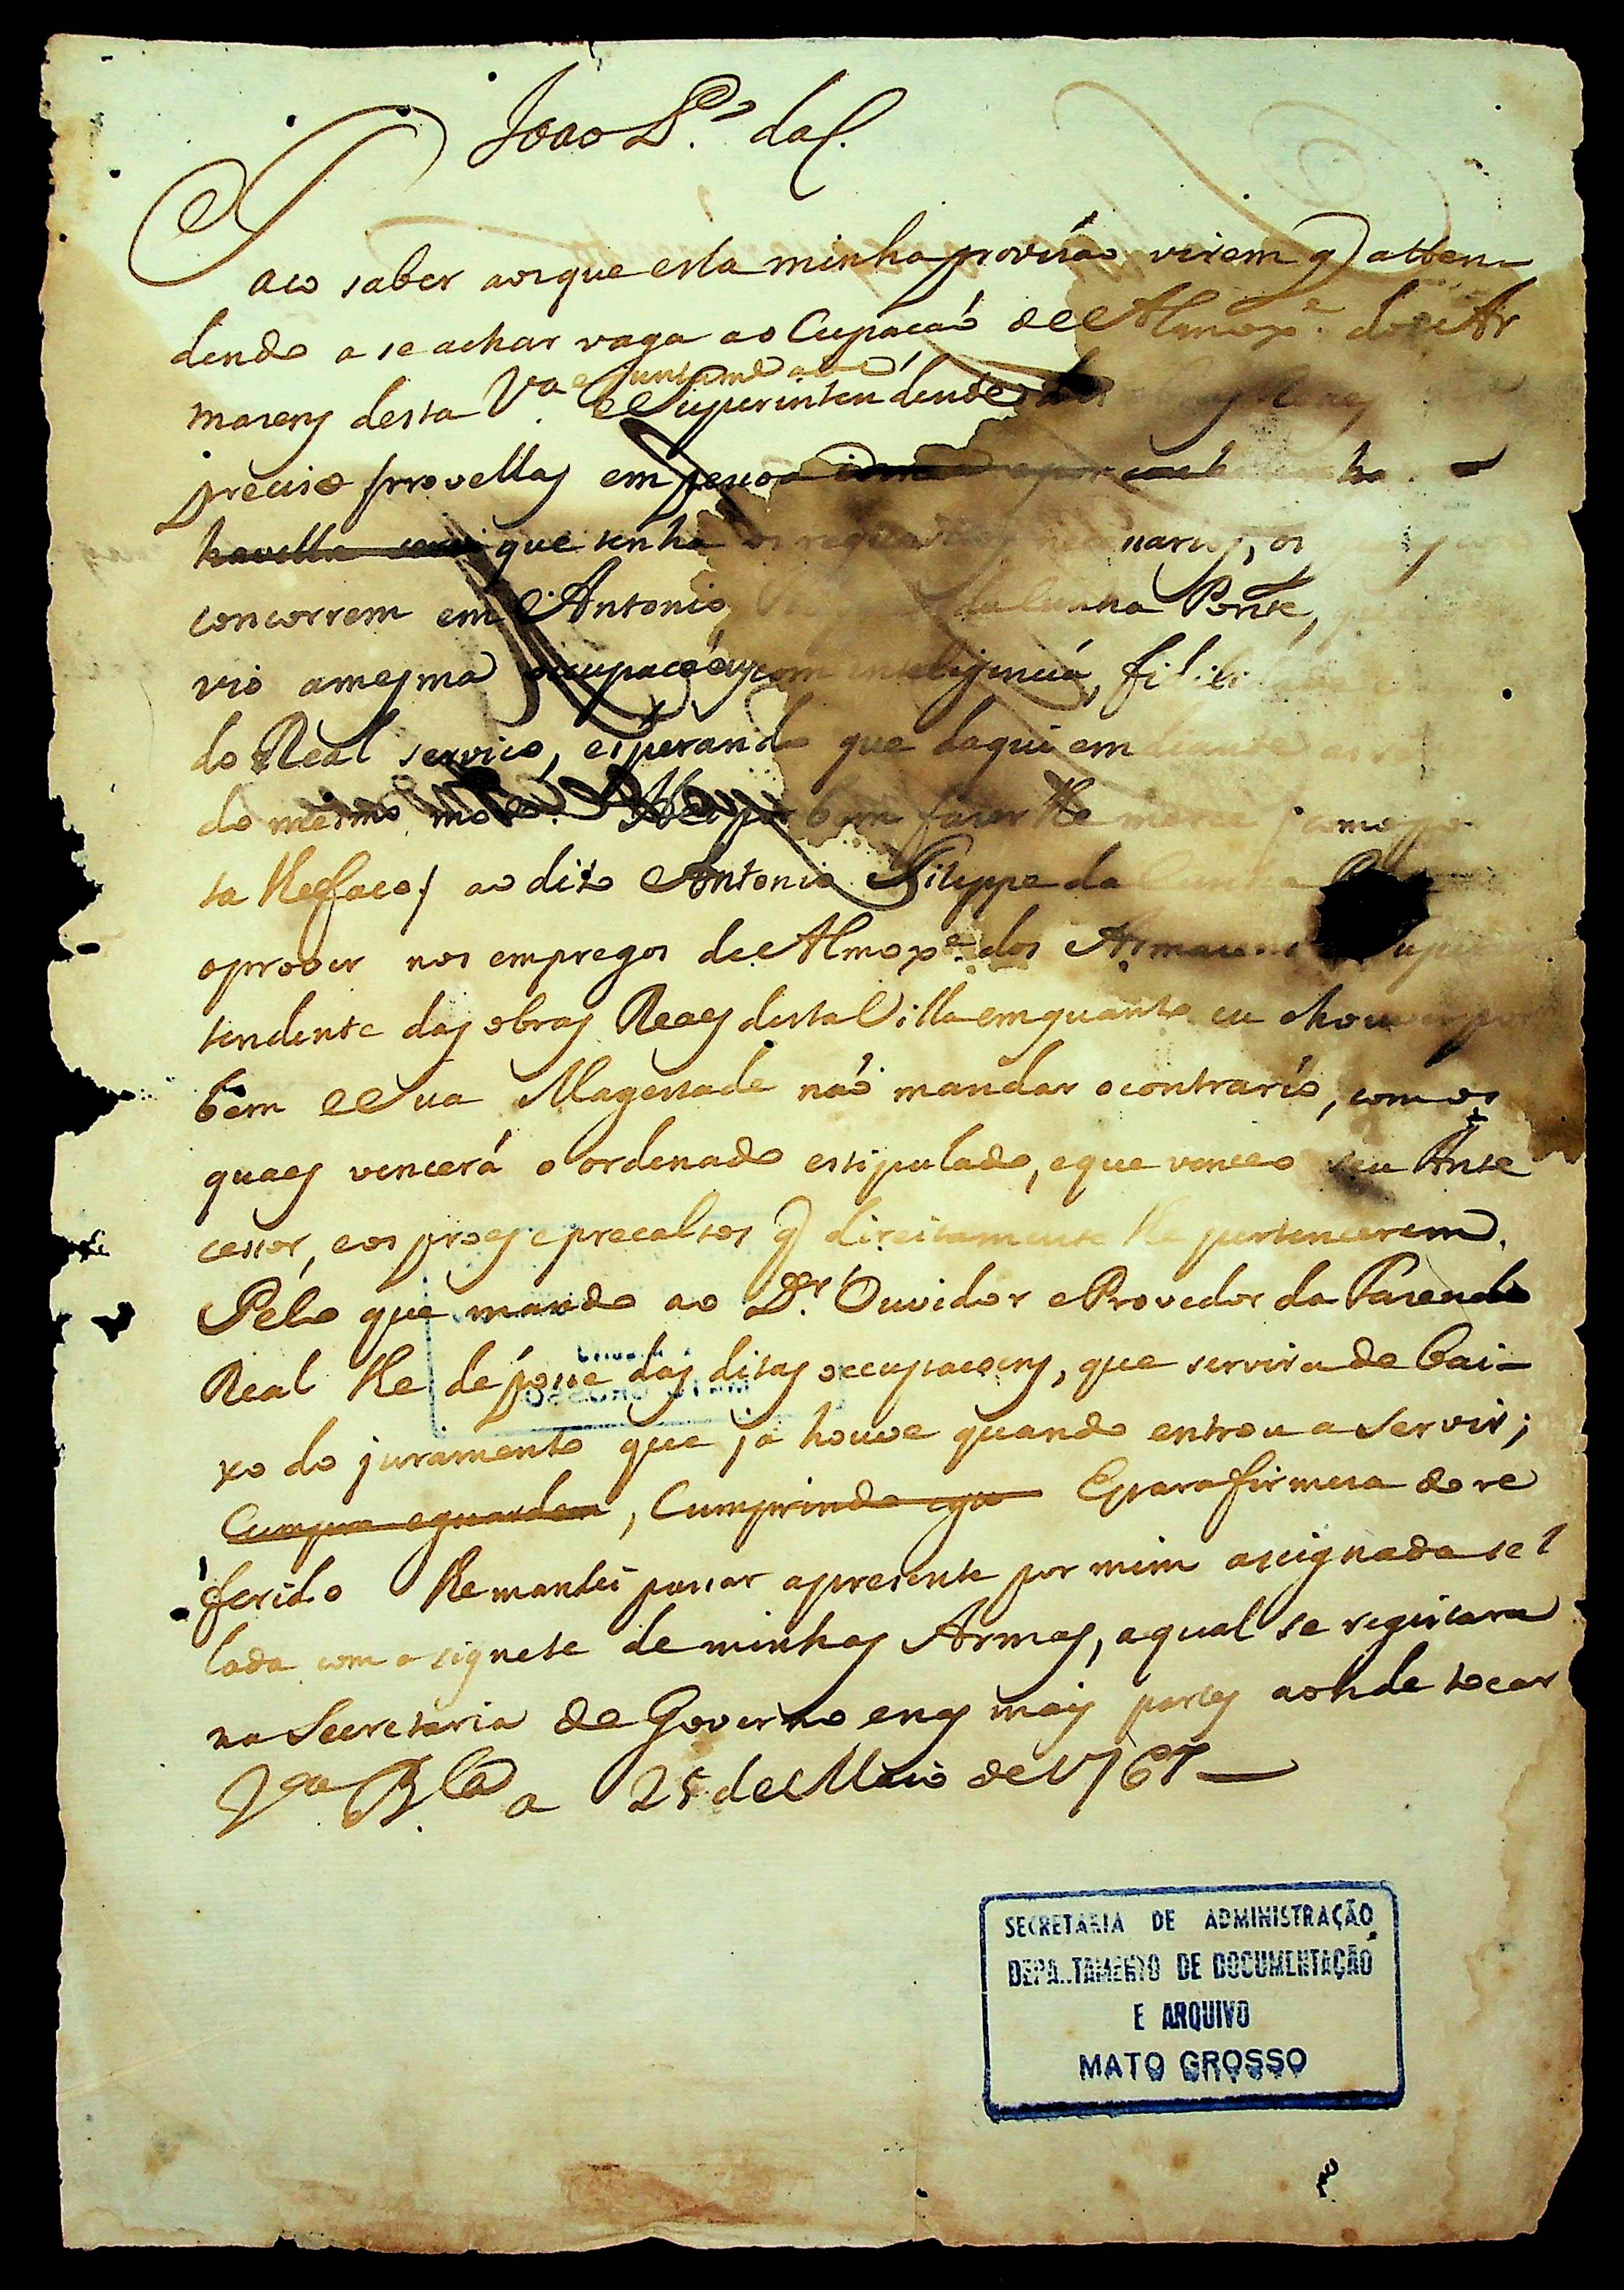 João P.º da C.
Faço saber aos que esta minha provisão virem q atten-
dendo a se achar vaga ao Cupação de Almox.e dos Ar
mazens desta V.a e juntam.e a de Superintendente
preciso provellas em pessoa
havella que tenha os requezitos narios, os
concorrem em Antonio da Cunha Ponte,
vio a mesma occupação com inteligencia, fi
do Real serviço, esperando que daqui em diante
do mesmo modo. Hei por bem fazer lhe merce / como po
ta lhe faço / ao dito Antonio Filippe da Cunha
a prover nos empregos de Almox.e dos Armazens
tendente das obras Reaes desta Villa emquanto eu o houver por
bem e Sua Magestade não mandar o contrario, com os
quaes vencerá o ordenado estipulado, e que venceo seu Ante
cessor, e os proes e precalsos q direitamente lhe pertencerem.
Pelo que mando ao D.r Ouvidor e Provedor da Fazenda
Real lhe dé posse das ditas occupaçoens, que servira de bai-
xo do juramento que ja houve quando entrou a servir;
Cumpra e guardem, Cumprindo Epara firmeza do re
ferido lhe mandei passar a presente por mim assignada sel
lada com o signete de minhas Armas, a qual se registara
na Secretaria de Governo e nas mais partes aonde tocar
V.a B.la a 25 de Maio de 1767
SECRETARIA DE ADMINISTRAÇÃO
DEPA..TAMENTO DE DOCUMENTAÇÃO
E ARQUIVO
MATO GROSSO